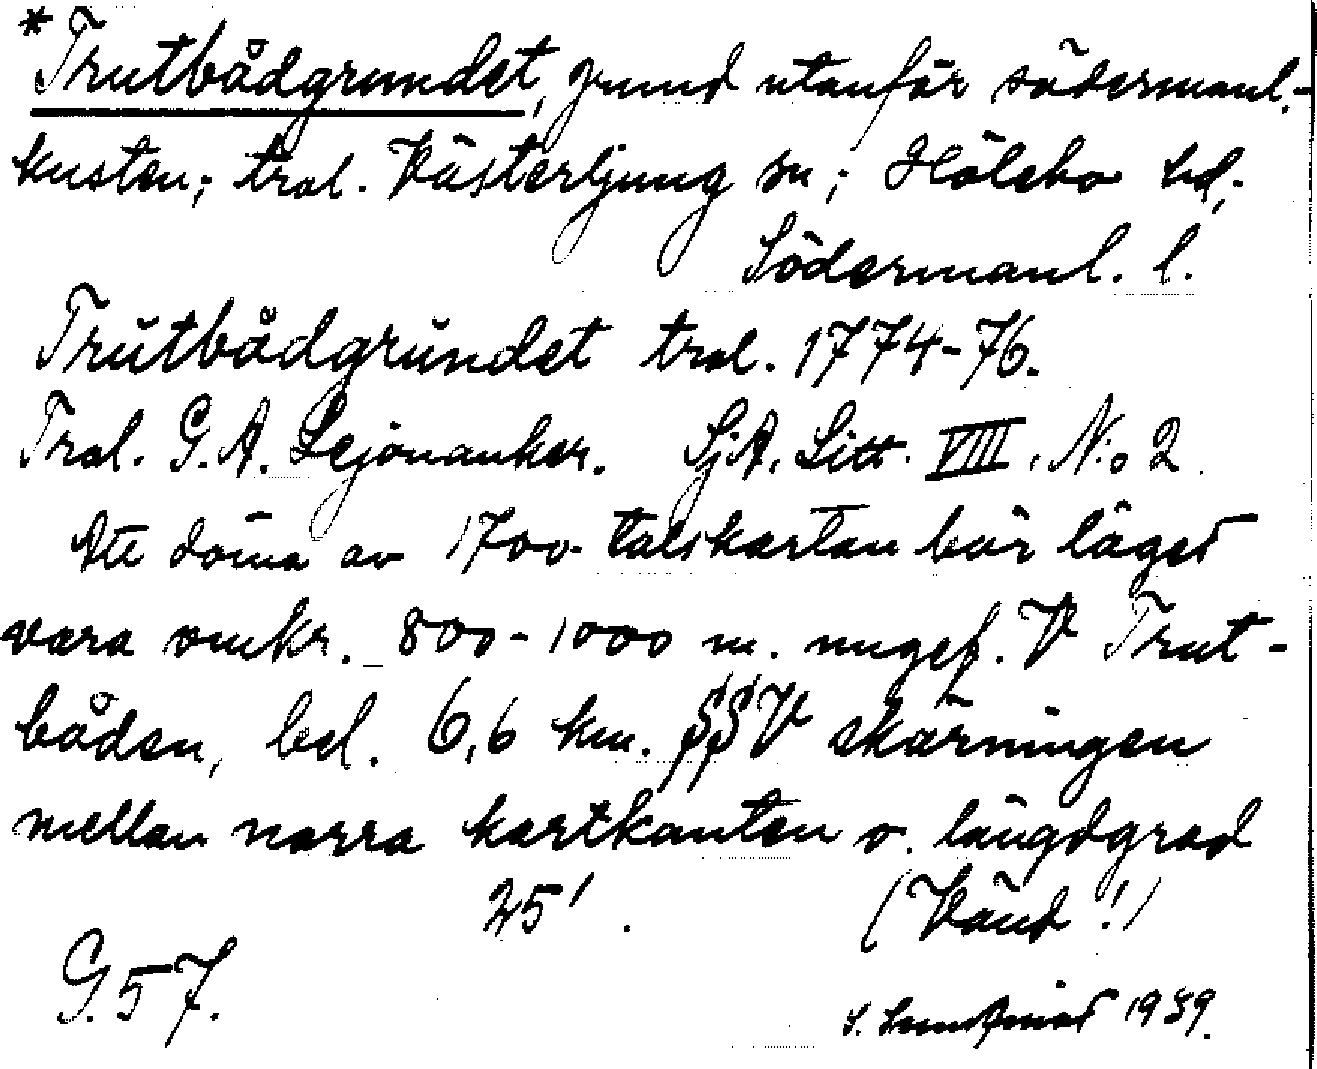 *Trutbådgrundet, grund utanför södermanl.-
kusten; trol. Västerljung sn; Hölebo hd;
Södermanl. l.
Trutbådgrundet trol. 1774-76.
Trol. G. A. Lejonanker. SjA. Litt. VIII. N:o 2.
Att döma av 1700-talskartan bör läget
vara omkr. 800-1000 m. ungef. V Trut-
båden, bel. 6,6 km. SSV skärningen
mellan norra kartkanten o. längdgrad
25'. (Vänd!)
G. 57.
1939.